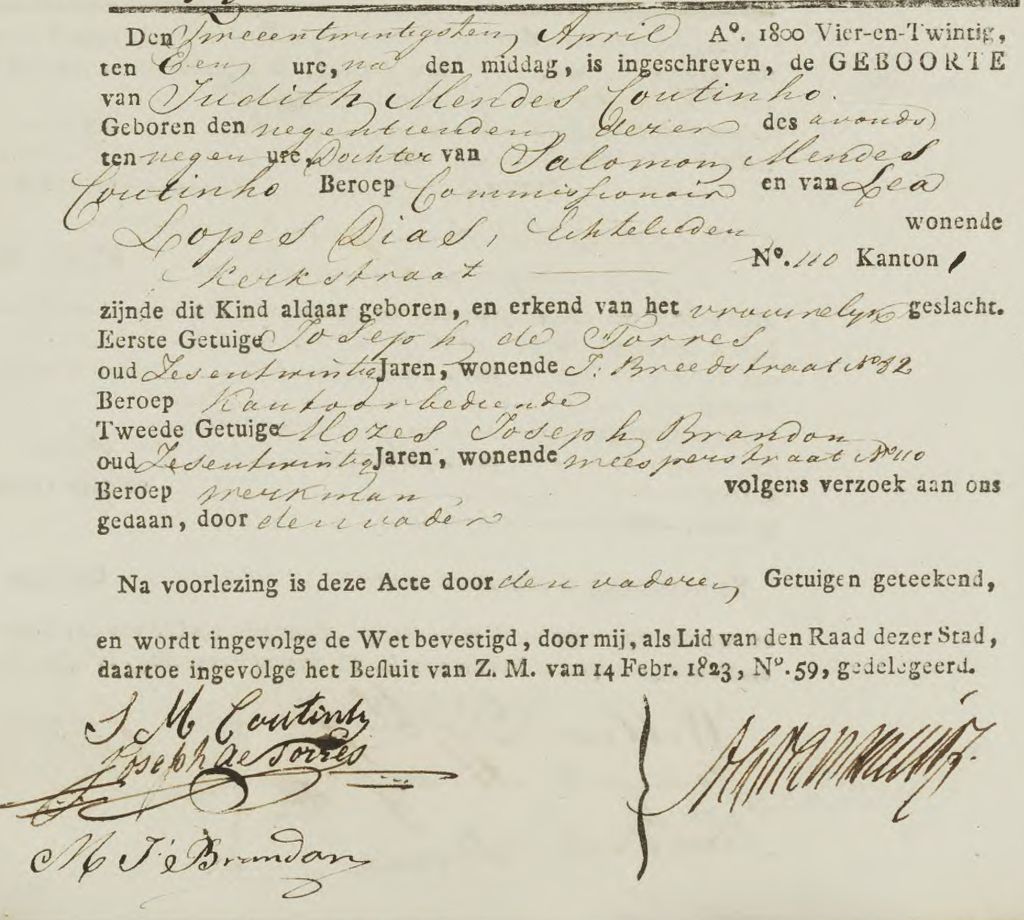 Den Tweeentwintigsten April Aº. 1800 Vier-en-Twintig,
ten Een ure, na den middag, is ingeschreven, de GEBOORTE
van Judith Mendes Coutinho.
Geboren den negentienden dezer des avonds
ten negen ure, Dochter van Salomon Mendes
Coutinho Beroep Commissionair en van Lea
Lopes Dias, Echtelieden wonende
Kerkstraat Nº. 110 Kanton 1
zijnde dit Kind aldaar geboren, en erkend van het vrouwelyk geslacht.
Eerste Getuige Joseph de Torres
oud Zesentwintig Jaren, wonende J: Breedstraat Nº 82
Beroep Kantoorbediende
Tweede Getuige Mozes Joseph Brandon
oud Zesentwintig Jaren, wonende Weesperstraat Nº 110
Beroep Werkman volgens verzoek aan ons
gedaan, door den vader
Na voorlezing is deze Acte door den vader en Getuigen geteekend,
en wordt ingevolge de Wet bevestigd, door mij, als Lid van den Raad dezer Stad,
daartoe ingevolge het Besluit van Z. M. van 14 Febr. 1823, Nº. 59, gedelegeerd.
S M Coutinho
Joseph de Torres
M J Brandon